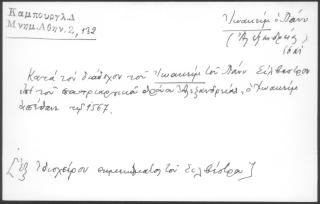 Καμπούρογλ. Δ
Μνημ. Αθην. 2, 132
Ἰωακείμ ὁ Πάνυ
(Ἀλεξανδρείας)
Κατά τόν διάδοχον τοῦ Ἰωακείμ τοῦ Πάνυ Σίλβεστρον
ἐπί τοῦ πατριαρχικοῦ θρόνου Ἀλεξανδρείας, ὁ Ἰωακείμ
ἀπέθανε τῷ 1567.
[ἐξ ἰδιοχείρου σημειώματος τοῦ Σιλβέστρου]